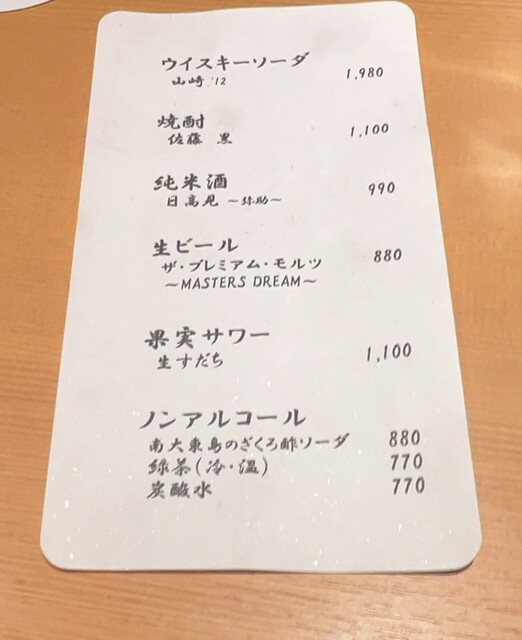 ウイスキーソーダ
山崎 '12 1,980
焼酎
佐藤 黒 1,100
純米酒 990
日高見 ~弥助~
生ビール
ザ・プレミアム・モルツ 880
~MASTERS DREAM~
果実サワー
生すだち 1,100
ノンアルコール
南大東島のざくろ酢ソーダ 880
緑茶(冷・温) 770
炭酸水 770